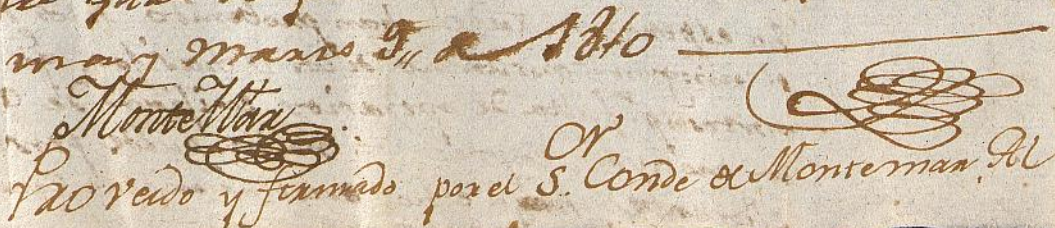 ma y Marzo 9,, de 1810
Monte Mar
Proveido y firmado por el S.or Conde de Montemar Al